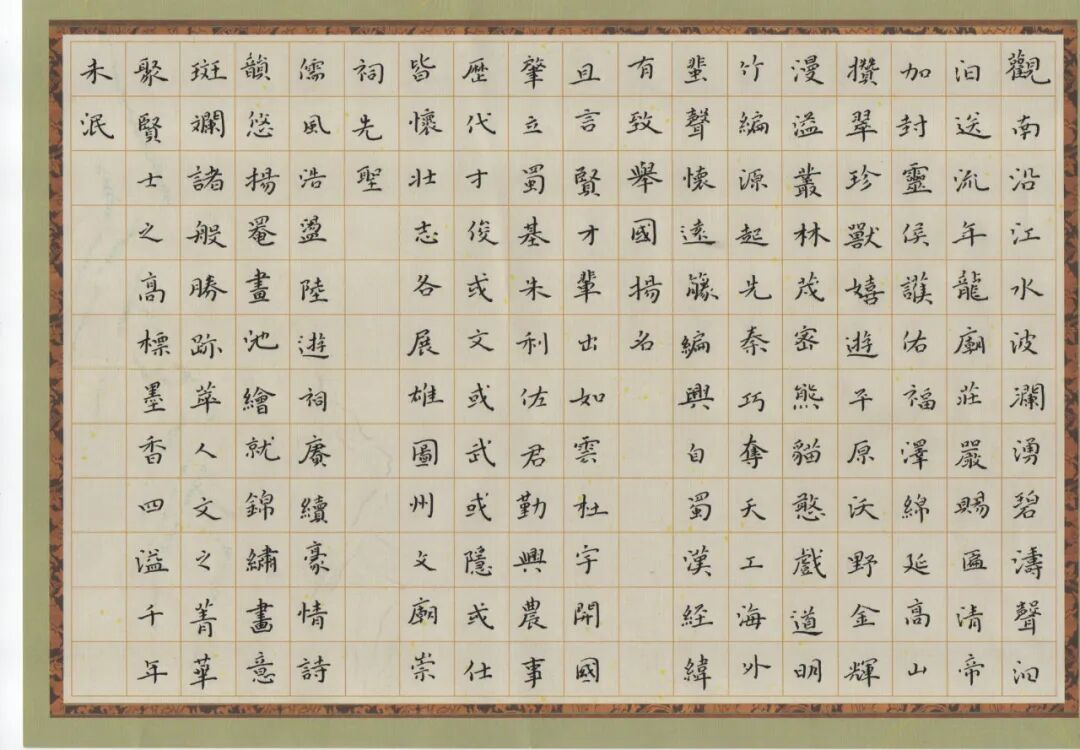 觀南沿江水波瀾湧碧濤聲汩
汩送流年龍廟莊嚴賜匾清帝
加封靈侯護佑福澤綿延高山
攢翠珍獸嬉遊平原沃野金輝
漫溢叢林茂密熊貓憨戲道明
竹編源起先秦巧奪天工海外
蜚聲懷遠籐編興自蜀漢経緯
有致舉國揚名
且言賢才輩出如雲杜宇開國
肇立蜀基朱利佐君勤興農事
歷代才俊或文或武或隱或仕
皆懷壯志各展雄圖州文廟崇
祠先聖
儒風浩盪陸遊祠賡續豪情詩
韻悠揚罨畫池繪就錦繡畫意
斑斕諸般勝跡萃人文之菁華
聚賢士之高標墨香四溢千年
未泯